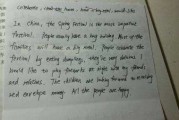 celebrate, clean up, have a big meal, sound like
In China, the Spring Festival is the most important
festival. People usually have a big cleaning. Most of the
families will have a big meal. People celebrate the
festival by eating dumplings, they're very delicious. I
would like to play fireworks at night with my friends
and relatives. The children are looking forward to receiving
red envelope money. All the people are happy